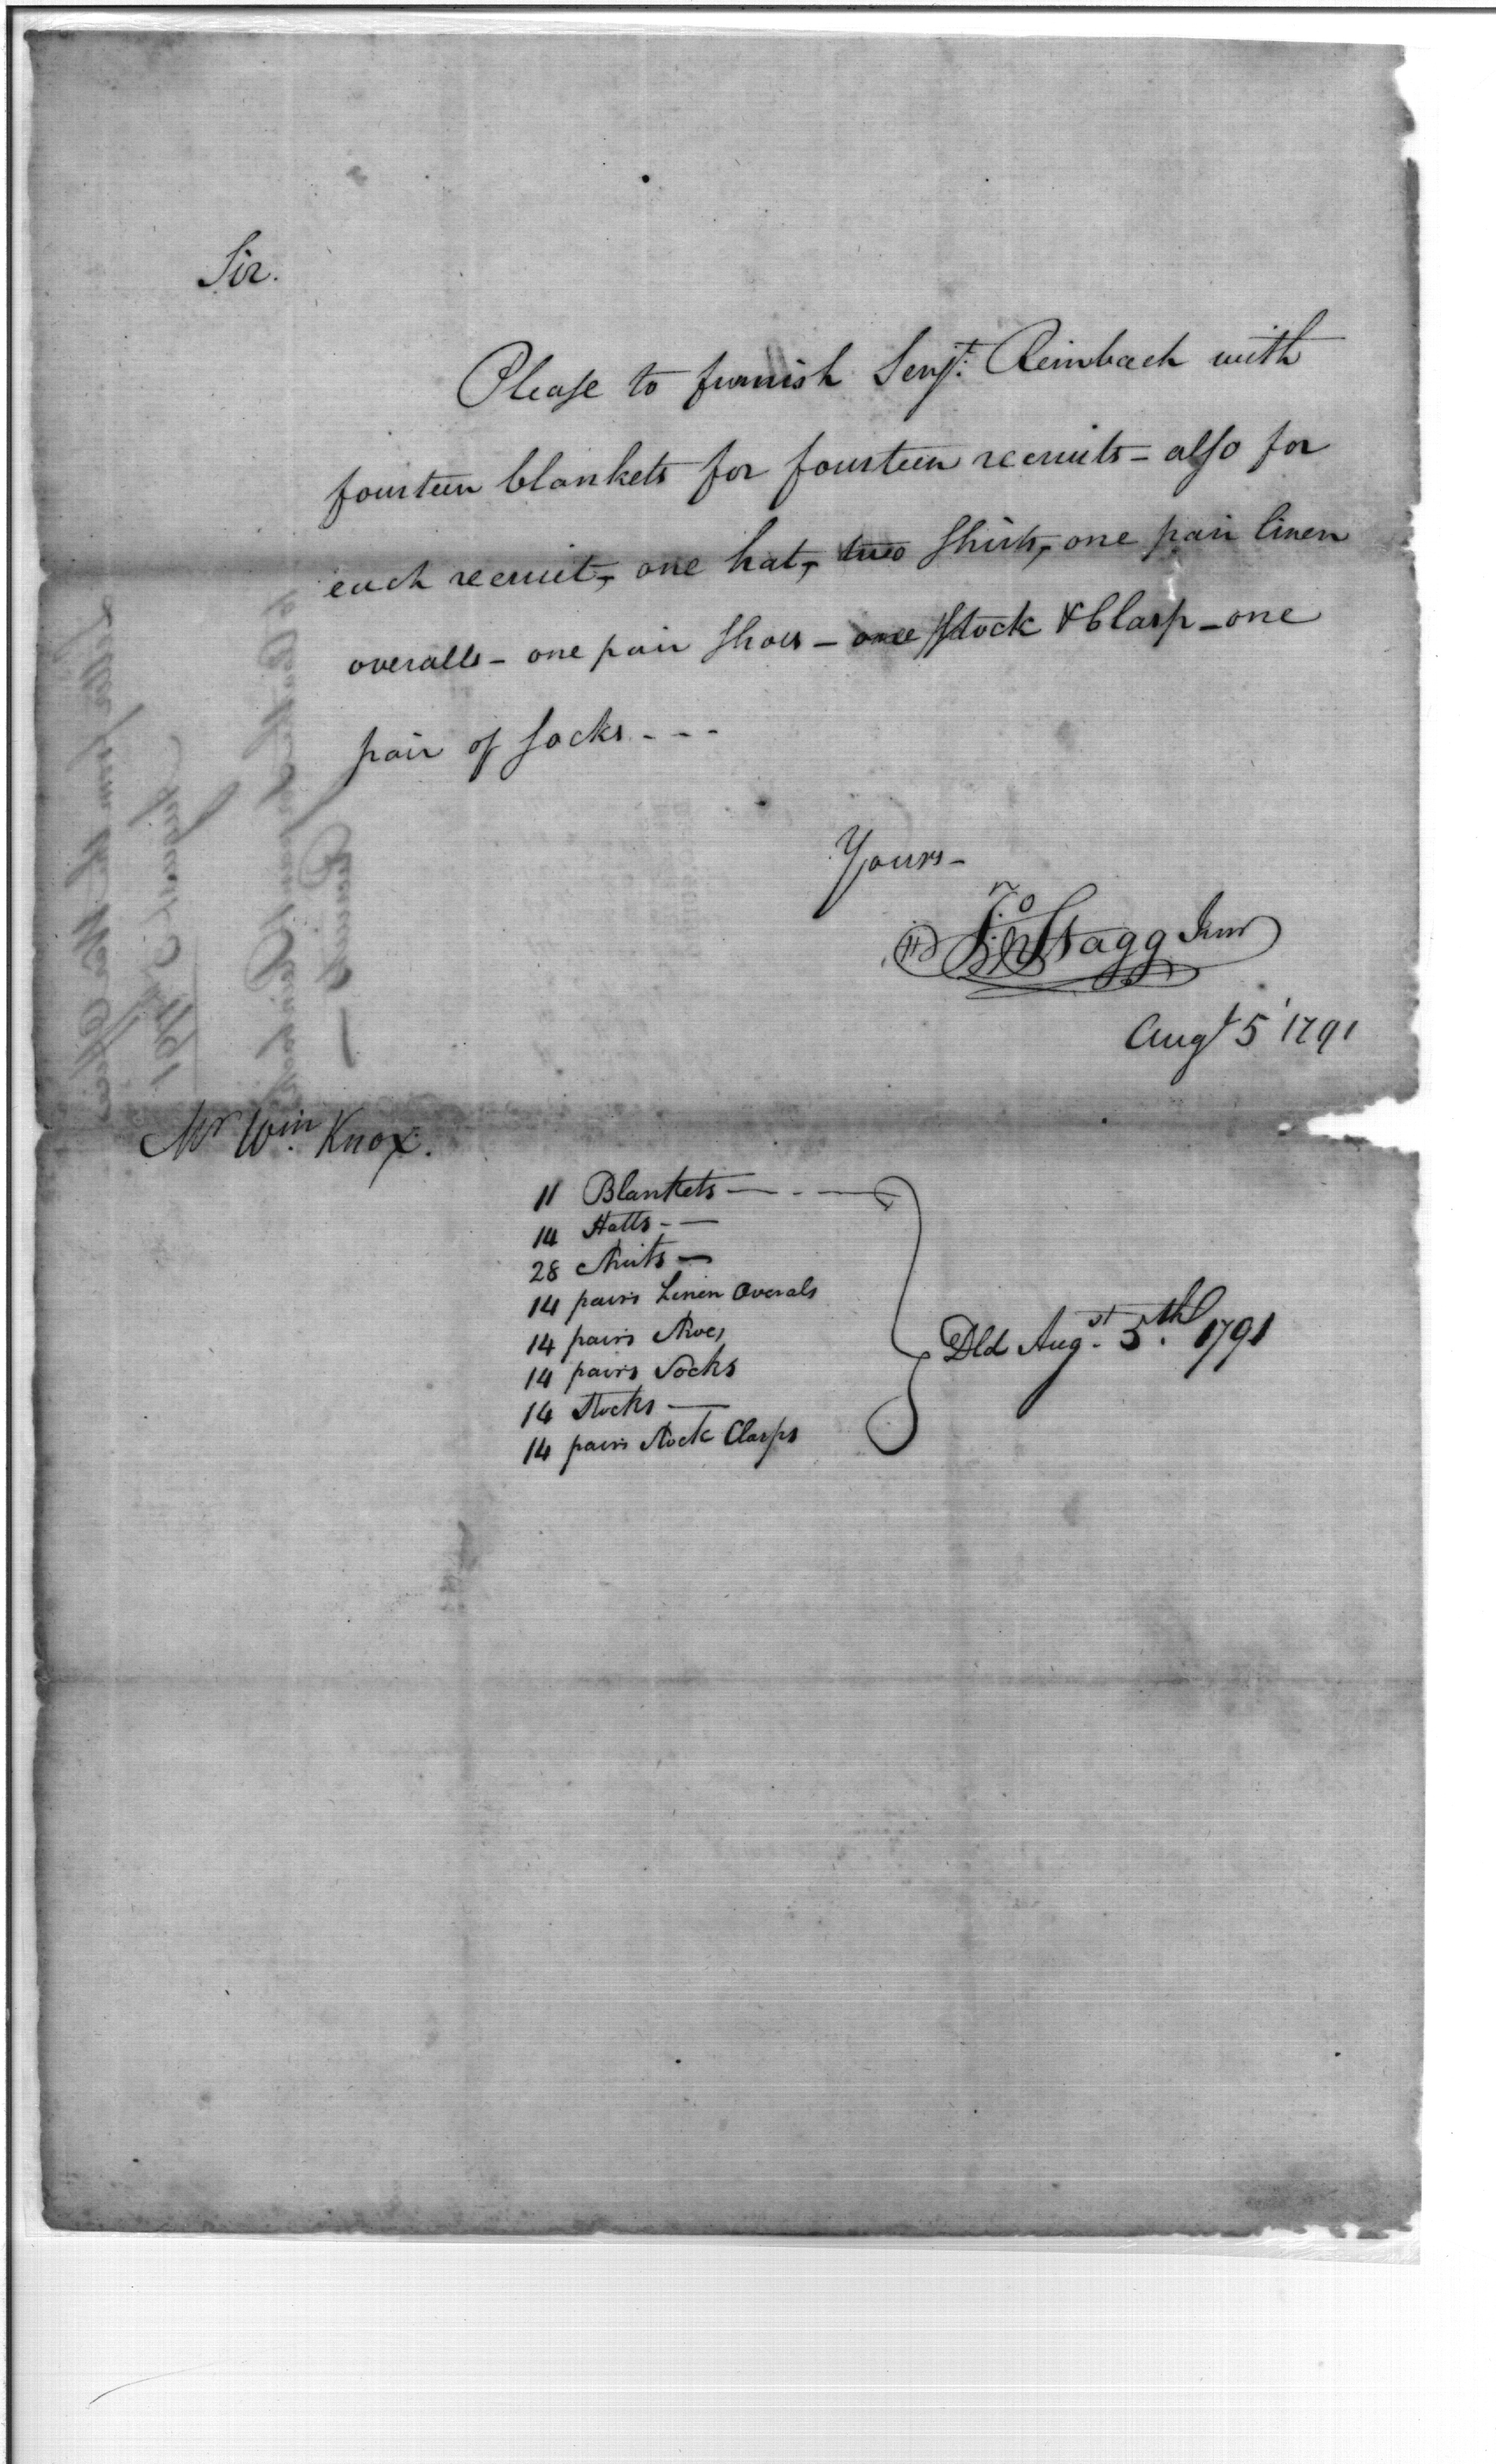 Sir.
Please to furnish Serjt. Reinbach with
fourteen blankets for fourteen recruits - also for
each recruit, one hat, two shirts, one pair linen
overalls - one pair shoes - one Stock & Clasp - one
pair of socks - - -
Yours -
Jno Stagg Junr
Augt 5 1791
Mr Wm. Knox.
11 Blankets — - —
14 Hatts - —
28 Shirts —
14 pairs Linen Overals
14 pairs Shoes
14 pairs Socks
14 Stocks —
14 pairs Stock Clasps
Dld Augst. 5th. 1791